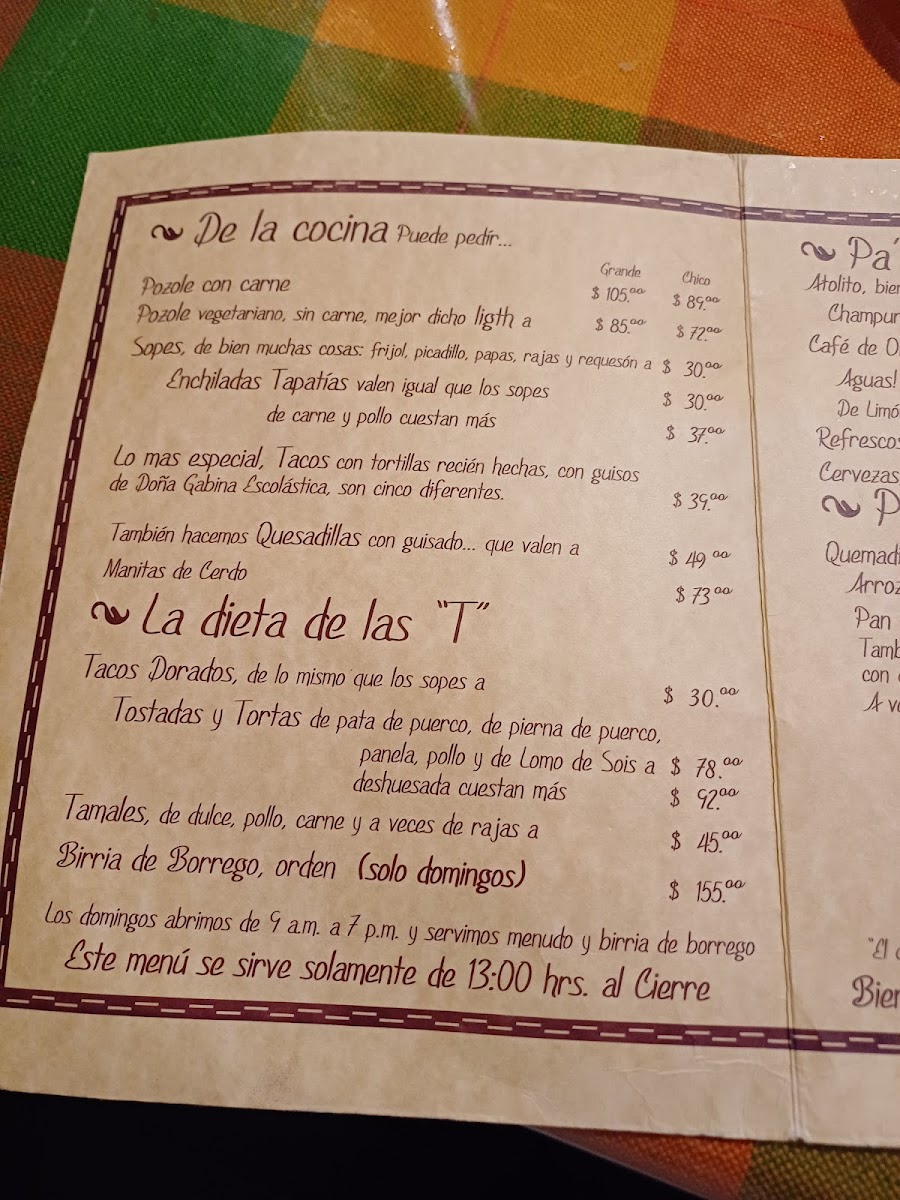 De la cocina Puede pedir...
Grande Chico
Pozole con carne $ 105.00 $ 89.00
Pozole vegetariano, sin carne, mejor dicho ligth a $ 85.00 $ 72.00
Sopes, de bien muchas cosas: frijol, picadillo, papas, rajas y requesón a $ 30.00
Enchiladas Tapatías valen igual que los sopes $ 30.00
de carne y pollo cuestan más $ 37.00
Lo mas especial, Tacos con tortillas recién hechas, con guisos
de Doña Gabina Escolástica, son cinco diferentes. $ 39.00
También hacemos Quesadillas con guisado... que valen a $ 49.00
Manitas de Cerdo $ 73.00
La dieta de las "T"
Tacos Dorados, de lo mismo que los sopes a $ 30.00
Tostadas y Tortas de pata de puerco, de pierna de puerco,
panela, pollo y de Lomo de Sois a $ 78.00
deshuesada cuestan más $ 92.00
Tamales, de dulce, pollo, carne y a veces de rajas a $ 45.00
Birria de Borrego, orden (solo domingos) $ 155.00
Los domingos abrimos de 9 a.m. a 7 p.m. y servimos menudo y birria de borrego
Este menú se sirve solamente de 13:00 hrs. al Cierre
Pa'
Atolito,
Café de
Aguas!
De
Refrescos
Cervezas
Arroz
Pan
con
"El